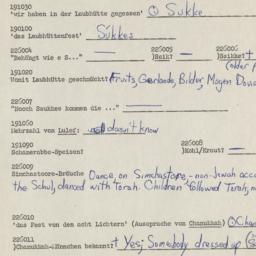 191030
'wir haben in der Laubhütte gegessen' ① Sukke
190100
'das Laubhüttenfest' Sukkes
226004 226005 226006
"Behügt wie e S..." — )Seik( — )Seikes( +
191020
Womit Laubhütte geschmückt? Fruits, Garlands, Bilder, Mogen Dovid
226007
"Nooch Saukkes kommen die ..." —
191060 226008
Mehrzahl von Lulef: doesn't know
191090 )Kohl/Kraut( —
Schanerabbo-Speisen? —
226009
Simchastoore-Bräuche Dance, on Simchastore - non-Jewish
the Schul, danced with Torah. Children followed Torah,
226010
'das Fest von den acht Lichtern' (Aussprache von Chanukkah) ①
226011
)Chanukkah-Männchen bekannt( + Yes; Somebody dressed up